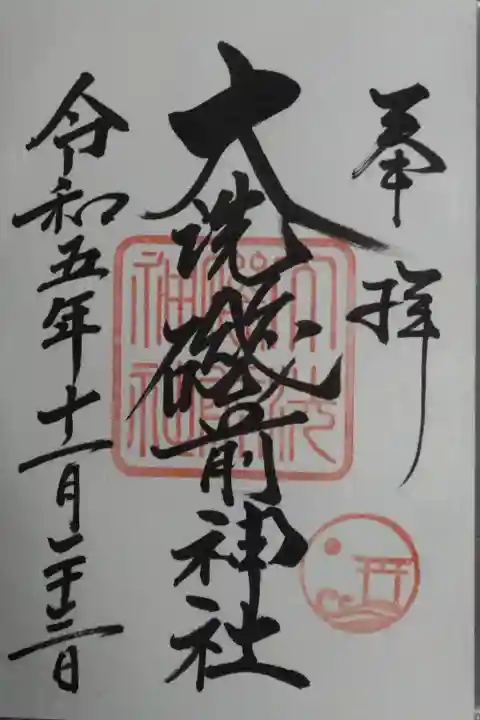 奉拝
大洗磯前神社
令和五年十一月二十三日